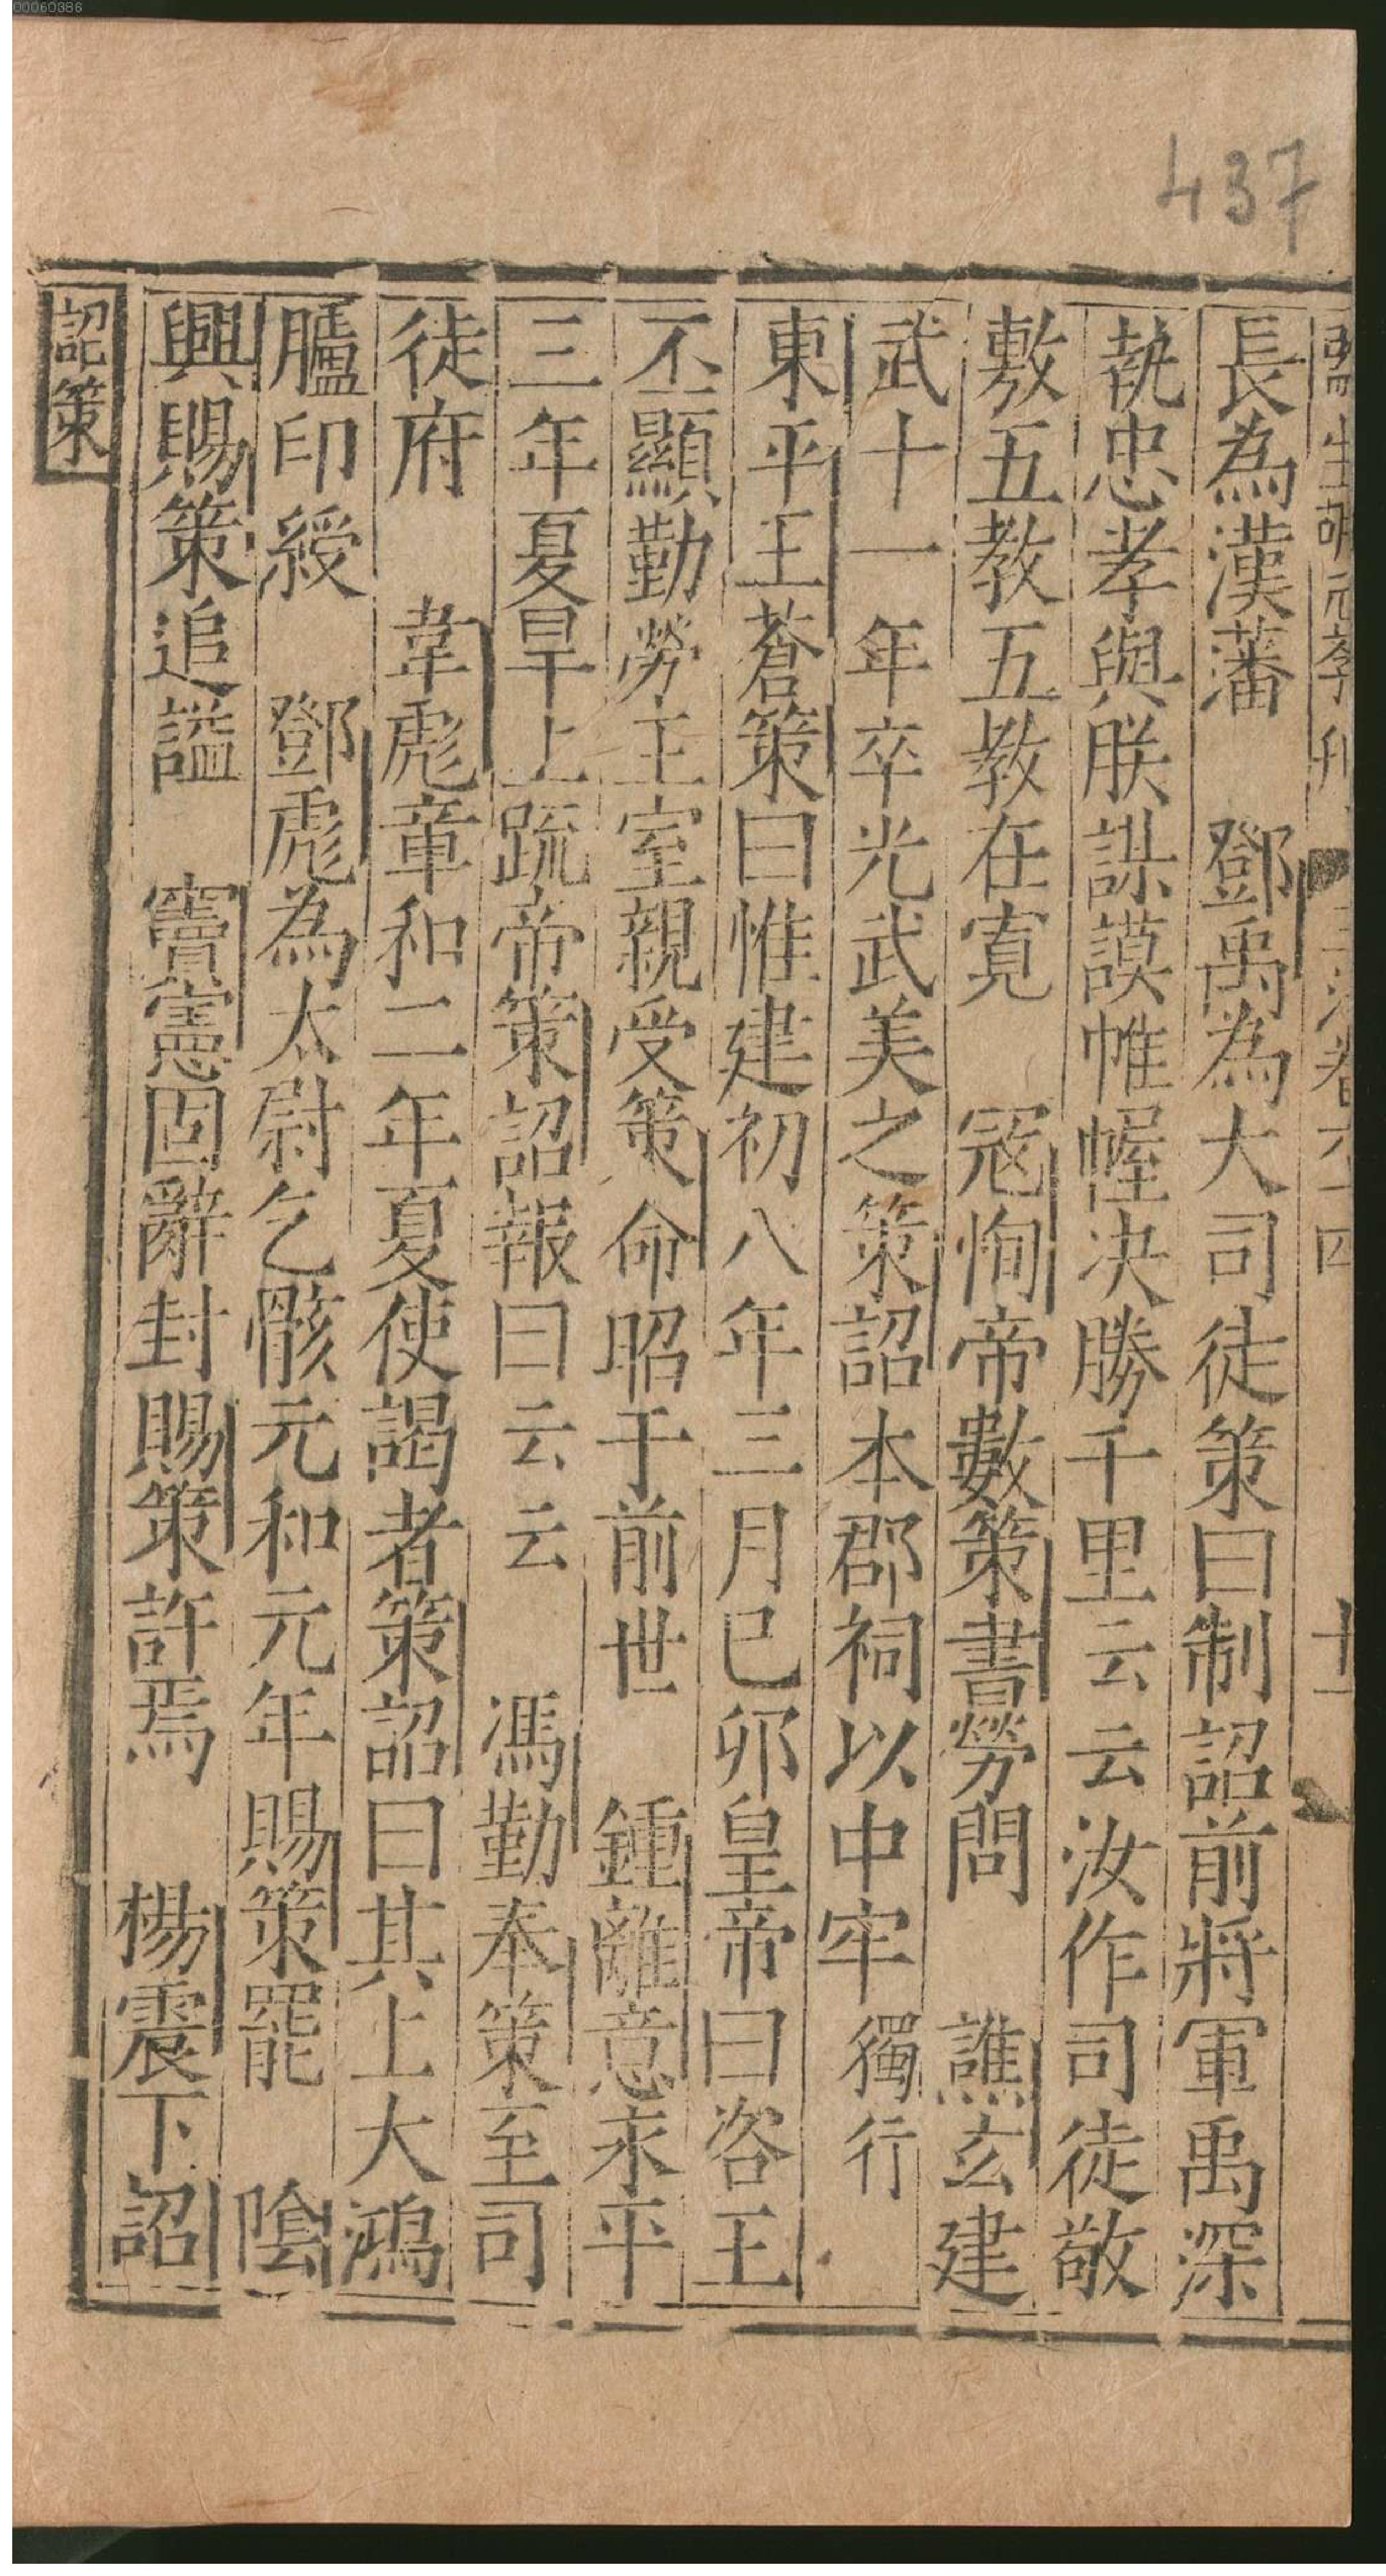 00060386
437
長為漢藩　鄧禹為大司徒策曰制詔前將軍禹深
執忠孝與朕謀謨帷幄决勝千里云云汝作司徒敬
敷五教五教在寬　冦恂帝數策書勞問　譙玄建
武十一年卒光武美之策詔本郡祠以中牢獨行
東平王蒼策曰惟建初八年三月已卯皇帝曰咨王
丕顯勤勞王室親受策命昭于前世　鍾離意永平
三年夏旱上疏帝策詔報曰云云　馮勤奉策至司
徒府　韋彪章和二年夏使謁者策詔曰其上大鴻
臚印綬　鄧彪為太尉乞骸元和元年賜策罷　陰
興賜策追謚　竇憲固辭封賜策許焉　楊震下詔
詔策